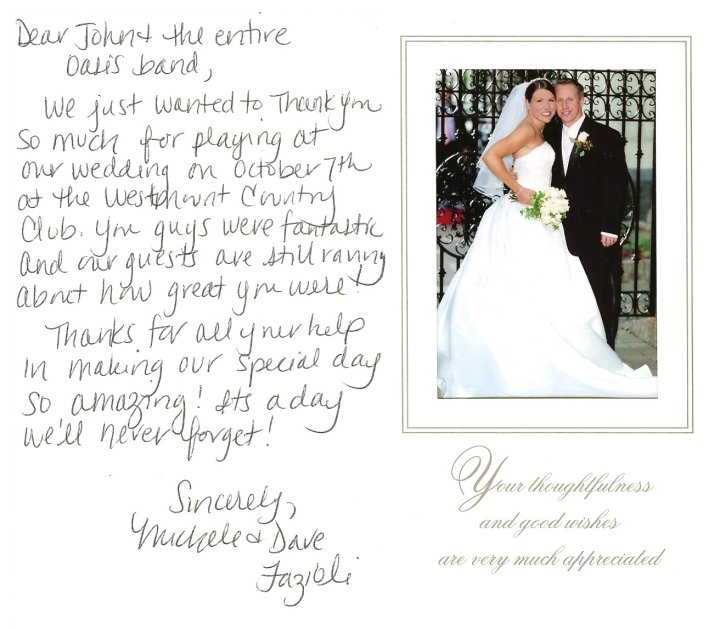 Dear John & the entire
Oasis band,
We just wanted to Thank you
so much for playing at
our wedding on October 7th
at the Westmount Country
Club. You guys were fantastic
and our guests are still raving
about how great you were!
Thanks for all your help
in making our special day
so amazing! Its a day
we'll never forget!
Sincerely,
Michele & Dave
Fazioli
Your thoughtfulness
and good wishes
are very much appreciated